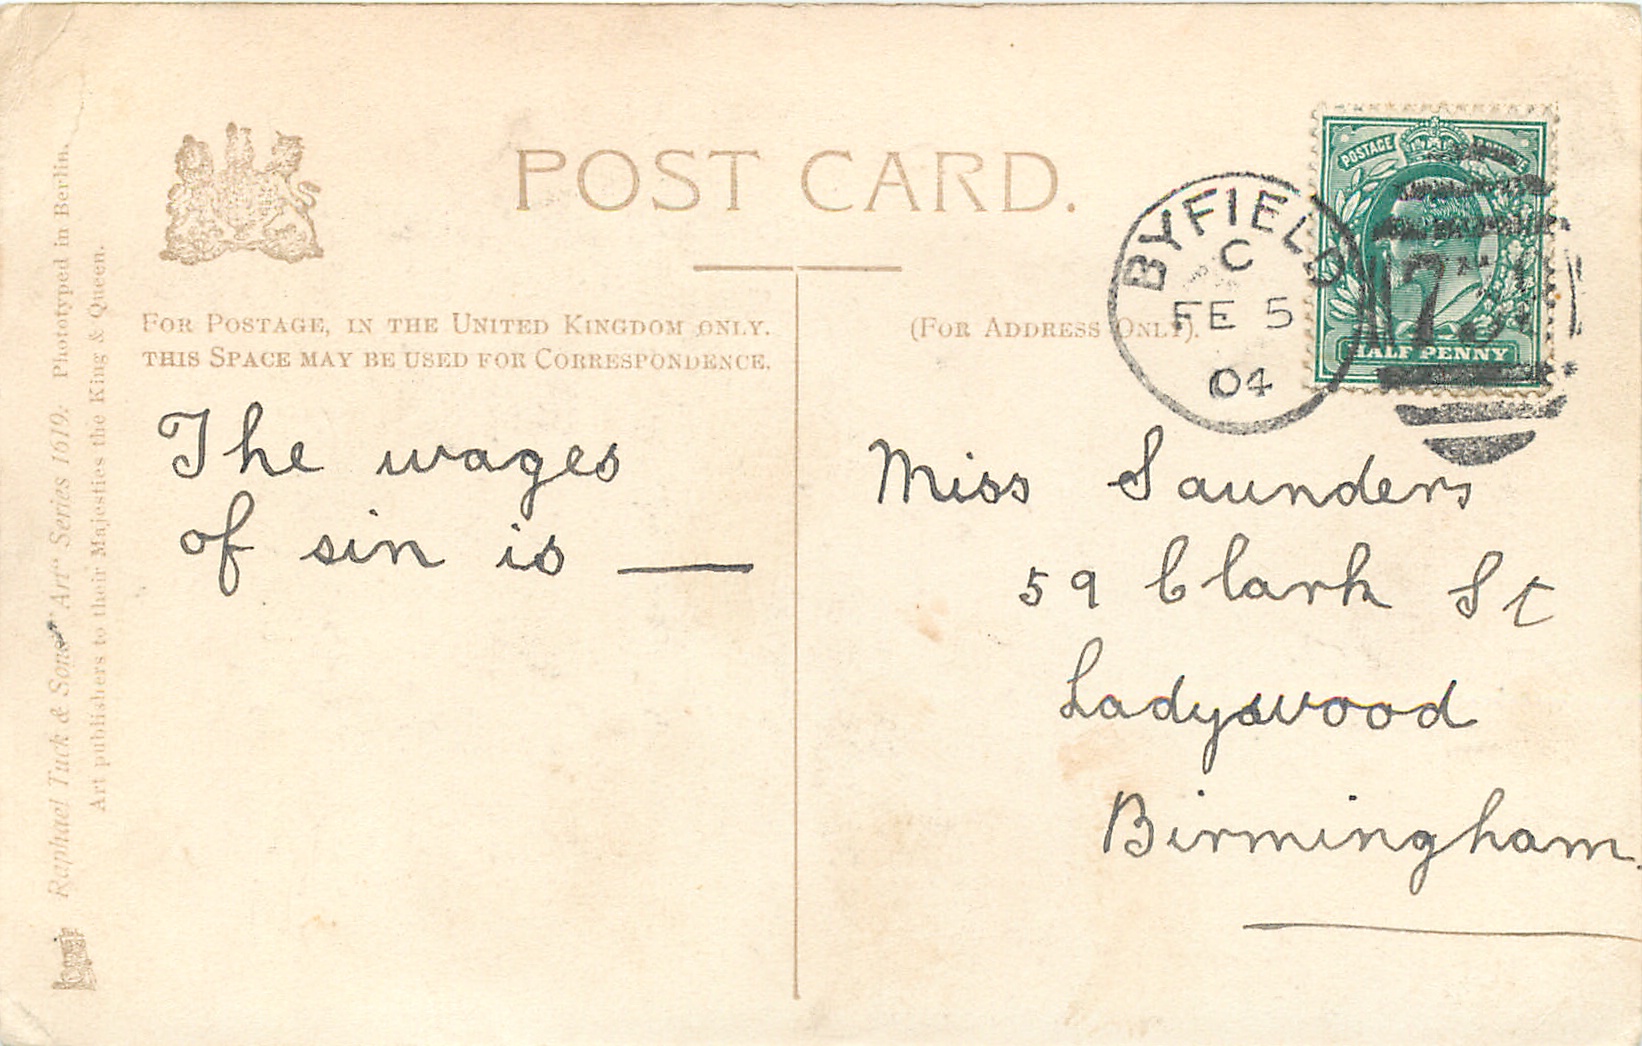 POST CARD.
FOR POSTAGE, IN THE UNITED KINGDOM ONLY.
THIS SPACE MAY BE USED FOR CORRESPONDENCE.
(FOR ADDRESS ONLY).
BYFIELD
C
FE 5
04
POSTAGE
HALF PENNY
The wages
of sin is —
Miss Saunders
59 Clark St
Ladywood
Birmingham.
Raphael Tuck & Sons' "Art" Series 1619. Phototyped in Berlin.
Art publishers to their Majesties the King & Queen.